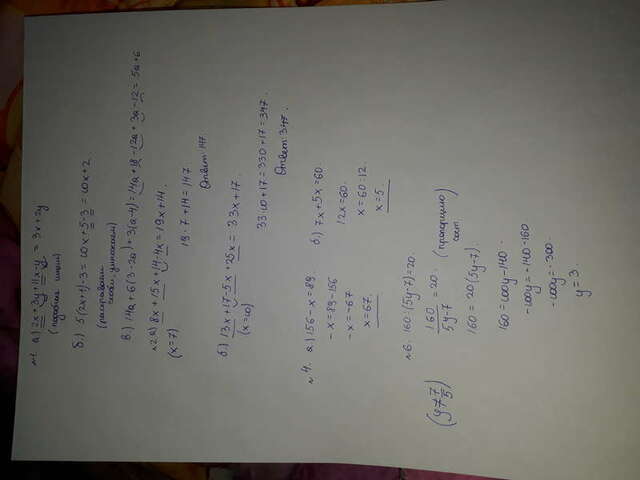 №1. а) 2x + 3y + 11x - y = 3x + 2y
(подобные
б) 5(2x+1)-3 = 10x+5-3 = 10x+2.
(раскрываем
скобки, умножаем)
в.) 14a + 6(3-2a) + 3(a-4) = 14a + 18 - 12a + 3a - 12 = 5a + 6
№2. а) 8x + 15x + 14 - 4x = 19x + 14.
(x=7)
19·7+14=147
Ответ: 147
б) 13x + 17 - 5x + 25x = 33x + 17.
(x=10)
33·10+17=330+17=347.
Ответ: 347.
№4. а) 156 - x = 89
-x = 89 - 156
-x = -67
x = 67.
б) 7x + 5x = 60
12x = 60.
x = 60:12.
x = 5
№6. 160:(5y-7)=20.
160/5y-7 = 20. (пропорцию
сост.)
160 = 20(5y-7).
160 = 100y - 140.
-100y = -140-160
-100y = -300.
y = 3.
(y≠7/5)